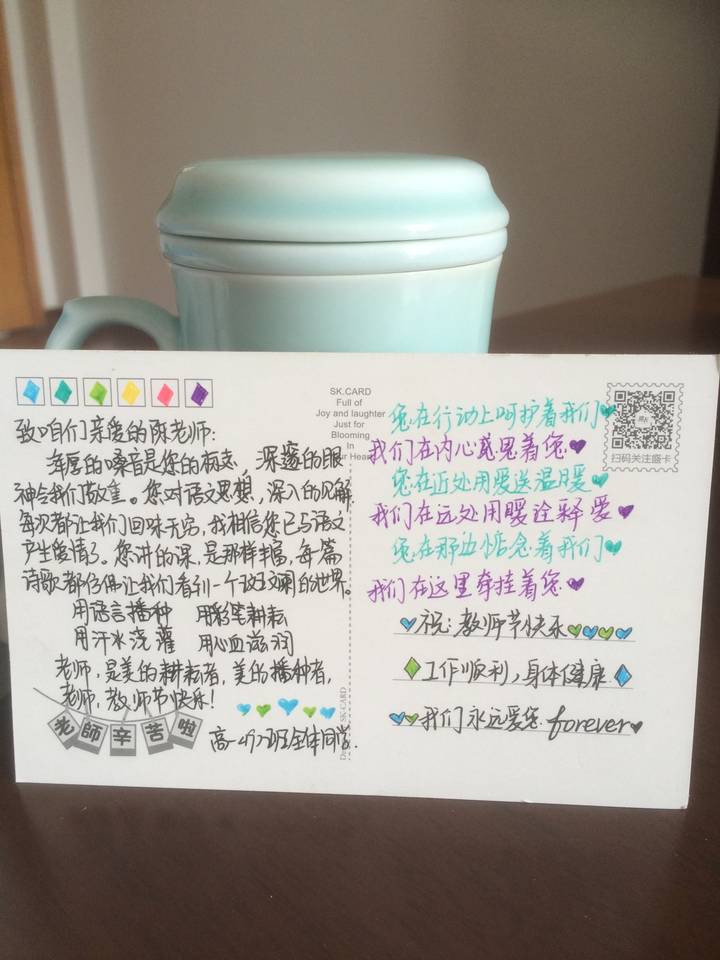 致咱们亲爱的陈老师:
浑厚的嗓音是您的标志,深邃的眼
神令我们敬重。您对语文思想,深入的见解
每次都让我们回味无穷,我相信您已与语文
产生爱情了。您讲的课,是那样丰富,每篇
诗歌都仿佛让我们看到一个斑斓的世界。
用语言播种 用彩笔耕耘
用汗水浇灌 用心血滋润
老师,是美的耕耘者,美的播种者,
老师,教师节快乐!
老師辛苦啦
高一(7)班全体同学.
SK.CARD
Full of
Joy and laughter
Just for
Blooming
In
ur Hear
SK-CARD
您在行动上呵护着我们
我们在内心感恩着您
您在近处用爱送温暖
我们在远处用暖诠释爱
您在那边惦念着我们
我们在这里牵挂着您
扫码关注盛卡
祝:教师节快乐
工作顺利,身体健康
我们永远爱您 forever